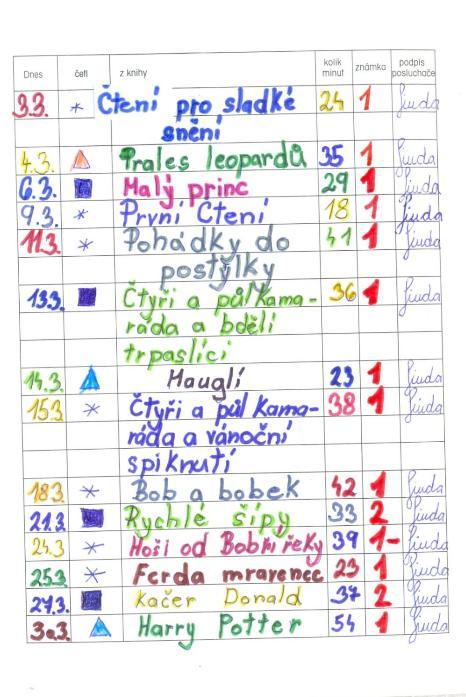 Dnes četl z knihy kolik minut známka podpis posluchače
3.3. * Čtení pro sladké 24 1 Giuda
snění
4.3. Prales leopardů 35 1 Giuda
6.3. Malý princ 29 1 Giuda
9.3. * První Čtení 18 1 Giuda
11.3. * Pohádky do 41 1 Giuda
postýlky
13.3. Čtyři a půl Kama- 36 1 Giuda
ráda a bdělí
trpaslíci
14.3. Mauglí 23 1 Giuda
153. * Čtyři a půl Kama- 38 1 Giuda
ráda a vánoční
spiknutí
183. * Bob a bobek 42 1 Giuda
21.3. Rychlé šípy 33 2 Giuda
24.3. * Hoši od Bobří řeky 39 1- Giuda
253. * Ferda mravenec 23 1 Giuda
27.3. Kačer Donald 37 2 Giuda
303. Harry Potter 54 1 Giuda